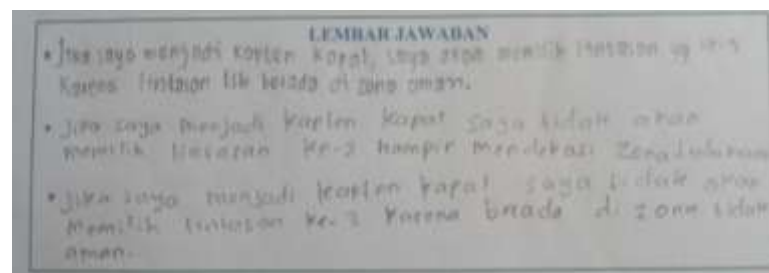 LEMBAR JAWABAN
• Jika saya menjadi kapten kapal, saya akan memilih lintasan yg ke-1
Karena lintasan tsb berada di zona aman.
• Jika saya menjadi kapten kapal saya tidak akan
memilih lintasan ke-2 hampir mendekati zona
• Jika saya menjadi kapten kapal saya tidak akan
memilih lintasan ke-3 karena berada di zona tidak
aman.